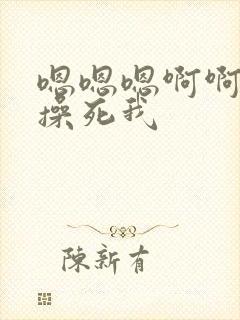 嗯嗯嗯啊啊
操死我
陳新有